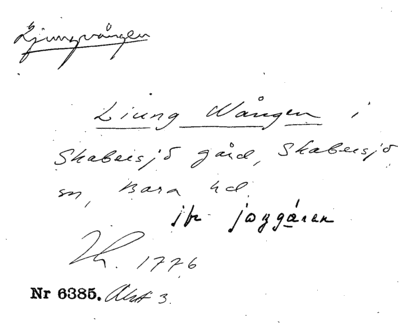 Ljungvången
Liung Wången i
Skabersjö gård, Skabersjö
sn, Bara hd.
jfr
Th. 1776
Nr 6385. Akt 3.